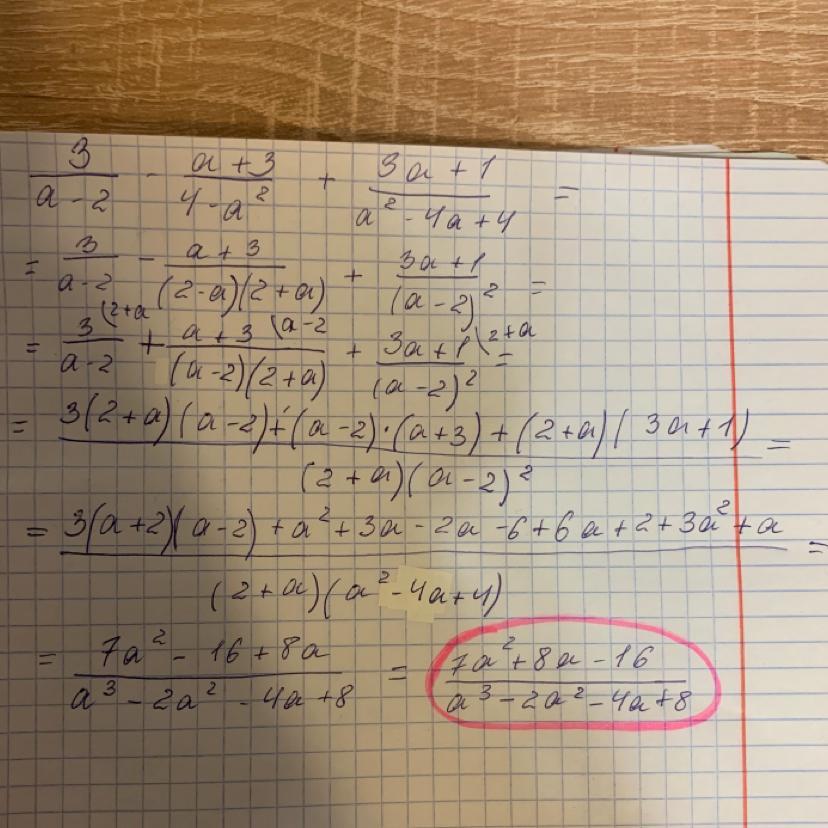 3/(a - 2) - (a + 3)/(4 - a²) + (3a + 1)/(a² - 4a + 4) =
= 3/(a - 2) - (a + 3)/((2 - a)(2 + a)) + (3a + 1)/(a - 2)² =
= 3\(2+a/(a - 2) + (a + 3)\(a-2/((a - 2)(2 + a)) + (3a + 1)\(2+a/(a - 2)² =
= (3(2 + a)(a - 2) + (a - 2)·(a + 3) + (2 + a)(3a + 1))/((2 + a)(a - 2)²) =
= (3(a + 2)(a - 2) + a² + 3a - 2a - 6 + 6a + 2 + 3a² + a)/((2 + a)(a² - 4a + 4)) =
= (7a² - 16 + 8a)/(a³ - 2a² - 4a + 8) = (7a² + 8a - 16)/(a³ - 2a² - 4a + 8)